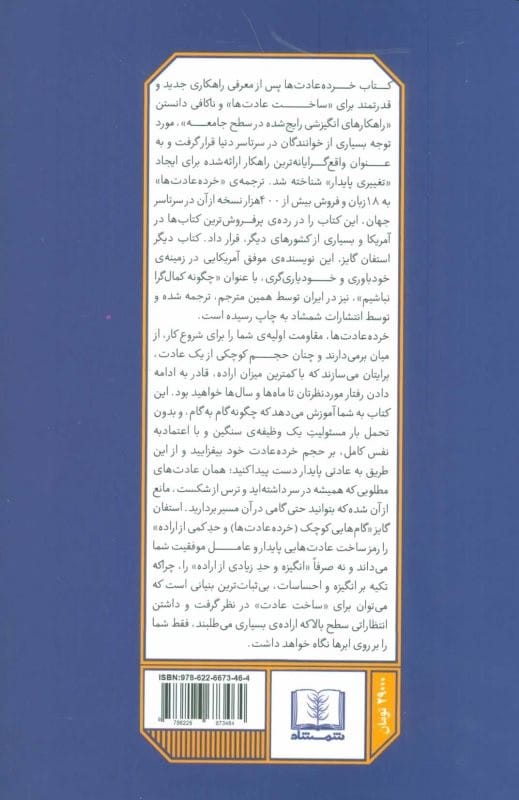 کتاب خـرده‌عادت‌ها پس از معرفی راهکاری جدید و
قدرتمند برای «ساخــت عادت‌ها» و ناکافی دانستن
«راهکارهای انگیزشی رایج‌شده در سطح جامعــه»، مورد
توجه بسیاری از خوانندگان در سرتاسر دنیا قرار گرفت و به
عنــوان واقع‌گرایانه‌ترین راهکار ارائه‌شده برای ایجاد
«تغییری پایدار» شناخته شد. ترجمه‌ی «خرده‌عادت‌ها»
به ۱۸ زبان و فروش بیش از ۴۰۰هزار نسخه از آن در سرتاسر
جهان، این کتاب را در رده‌ی پرفروش‌ترین کتاب‌ها در
آمریکا و بسیاری از کشورهای دیگر، قرار داد. کتاب دیگر
استفان گایز، این نویسنده‌ی موفق آمریکایی در زمینه‌ی
خودباوری و خودیاری‌گری، با عنوان «چگونه کمال‌گرا
نباشیم»، نیز در ایران توسط همین مترجم، ترجمه شده و
توسط انتشارات شمشاد به چاپ رسیده است.
خرده‌عادت‌ها، مقاومت اولیه‌ی شما را برای شروع کار، از
میان برمی‌دارند و چنان حجــم کوچکی از یک عادت،
برایتان می‌سازند که با کمترین میزان اراده، قادر به ادامه
دادن رفتار موردنظرتان تا ماه‌ها و سال‌ها خواهید بود. این
کتاب به شما آموزش می‌دهد که چگونه گام به گام، و بدون
تحمل بار مسئولیتِ یک وظفه‌ی سنگین و با اعتمادبه
نفس کامل، بر حجم خرده‌عادت خود بیفزایید و از این
طریق به عادتی پایدار دست پیدا کنید؛ همان عادت‌های
مطلوبی که همیشه در سر داشته‌اید و ترس از شکست، مانع
از آن شده که بتوانید حتی گامی در آن مسیر بردارید. استفان
گایز «گام‌هایی کوچک (خرده‌عادت‌ها) و حد کمی از اراده»
را رمز ساخت عادت‌هایی پایدار و عامــل موفقیت شما
می‌داند و نه صرفاً «انگیزه و حدِ زیادی از اراده» را، چراکه
تکیه بر انگیزه و احساسات، بی‌ثبات‌ترین بنیانی است که
می‌توان برای «ساخت عادت» در نظر گرفت و داشتن
انتظاراتی سطح بالا که اراده‌ی بسیاری می‌طلبند، فقط شما
را بر روی ابرها نگاه خواهد داشت.
ISBN:978-622-6673-46-4
9 786226 673464
شمشاد
۲۹۰۰۰ تومان